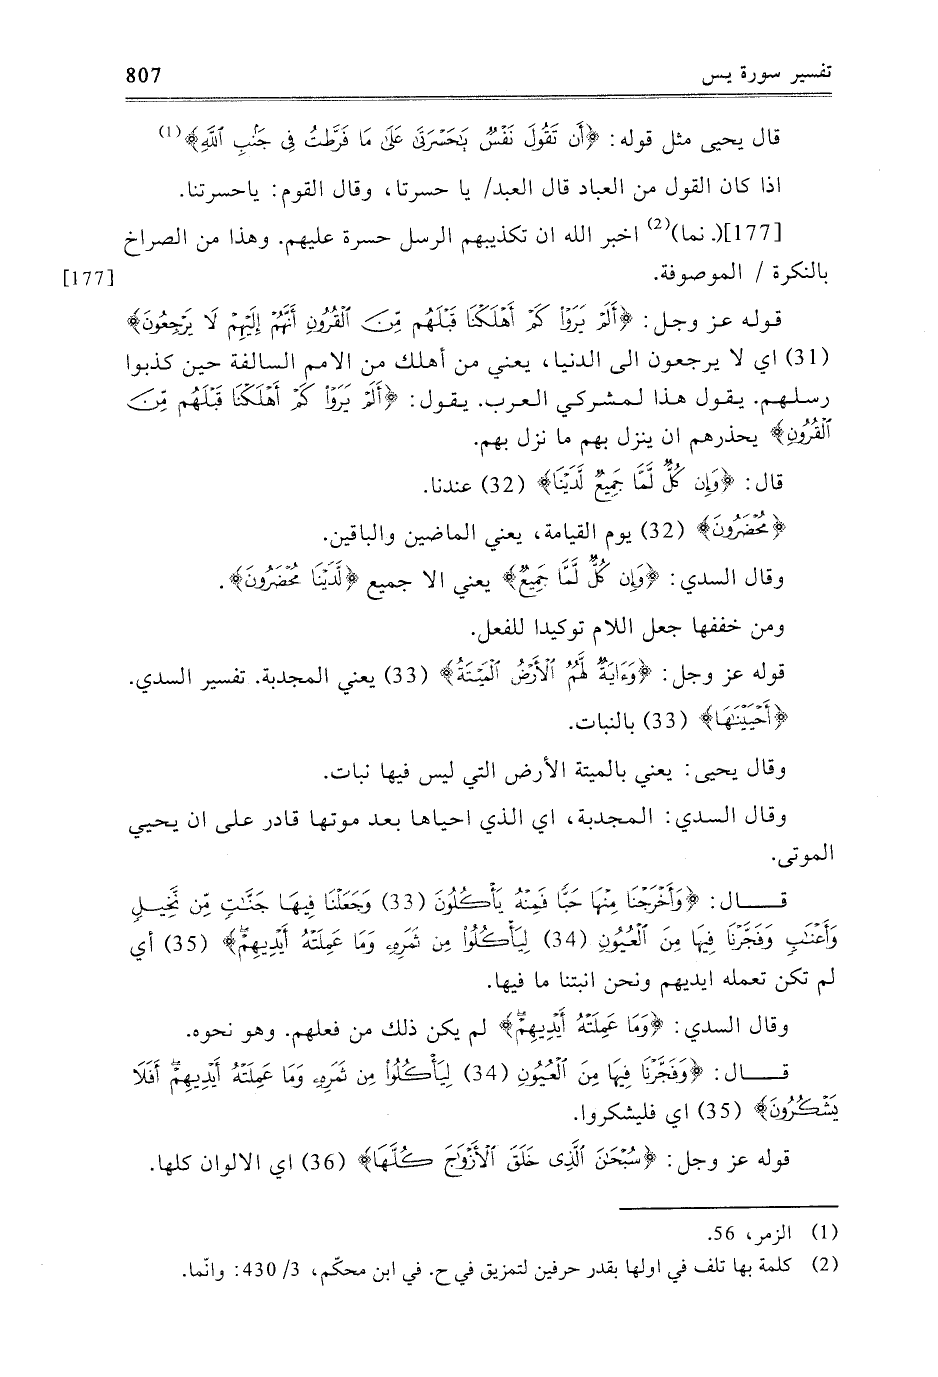 تفسير سورة يــس 807
قال يحيى مثل قوله: ﴿أَن تَقُولَ نَفْسٌ يَٰحَسْرَتَىٰ عَلَىٰ مَا فَرَّطتُ فِى جَنۢبِ ٱللَّهِ﴾(1)
اذا كان القول من العباد قال العبد/ يا حسرتا، وقال القوم: ياحسرتنا.
[177](. نما)(2) اخبر الله ان تكذيبهم الرسل حسرة عليهم. وهذا من الصراخ
بالنكرة / الموصوفة. [177]
قوله عز وجل: ﴿أَلَمْ يَرَوْا۟ كَمْ أَهْلَكْنَا قَبْلَهُم مِّنَ ٱلْقُرُونِ أَنَّهُمْ إِلَيْهِمْ لَا يَرْجِعُونَ﴾
(31) اي لا يرجعون الى الدنيا، يعني من أهلك من الامم السالفة حين كذبوا
رسلهم. يقول هذا لمشركي العرب. يقول: ﴿أَلَمْ يَرَوْا۟ كَمْ أَهْلَكْنَا قَبْلَهُم مِّنَ
ٱلْقُرُونِ﴾ يحذرهم ان ينزل بهم ما نزل بهم.
قال: ﴿وَإِن كُلٌّ لَّمَّا جَمِيعٌ لَّدَيْنَا﴾ (32) عندنا.
﴿مُحْضَرُونَ﴾ (32) يوم القيامة، يعني الماضين والباقين.
وقال السدي: ﴿وَإِن كُلٌّ لَّمَّا جَمِيعٌ﴾ يعني الا جميع ﴿لَّدَيْنَا مُحْضَرُونَ﴾.
ومن خففها جعل اللام توكيدا للفعل.
قوله عز وجل: ﴿وَءَايَةٌ لَّهُمُ ٱلْأَرْضُ ٱلْمَيْتَةُ﴾ (33) يعني المجدبة. تفسير السدي.
﴿أَحْيَيْنَٰهَا﴾ (33) بالنبات.
وقال يحيى: يعني بالميتة الأرض التي ليس فيها نبات.
وقال السدي: المجدبة، اي الذي احياها بعد موتها قادر على ان يحيي
الموتى.
قـــال: ﴿وَأَخْرَجْنَا مِنْهَا حَبًّا فَمِنْهُ يَأْكُلُونَ (33) وَجَعَلْنَا فِيهَا جَنَّٰتٍ مِّن نَّخِيلٍ
وَأَعْنَٰبٍ وَفَجَّرْنَا فِيهَا مِنَ ٱلْعُيُونِ (34) لِيَأْكُلُوا۟ مِن ثَمَرِهِۦ وَمَا عَمِلَتْهُ أَيْدِيهِمْ﴾ (35) أي
لم تكن تعمله ايديهم ونحن انبتنا ما فيها.
وقال السدي: ﴿وَمَا عَمِلَتْهُ أَيْدِيهِمْ﴾ لم يكن ذلك من فعلهم. وهو نحوه.
قـــال: ﴿وَفَجَّرْنَا فِيهَا مِنَ ٱلْعُيُونِ (34) لِيَأْكُلُوا۟ مِن ثَمَرِهِۦ وَمَا عَمِلَتْهُ أَيْدِيهِمْ أَفَلَا
يَشْكُرُونَ﴾ (35) اي فليشكروا.
قوله عز وجل: ﴿سُبْحَٰنَ ٱلَّذِى خَلَقَ ٱلْأَزْوَٰجَ كُلَّهَا﴾ (36) اي الالوان كلها.
(1) الزمر، 56.
(2) كلمة بها تلف في اولها بقدر حرفين لتمزيق في ح. في ابن محكّم، 3/ 430: وانّما.